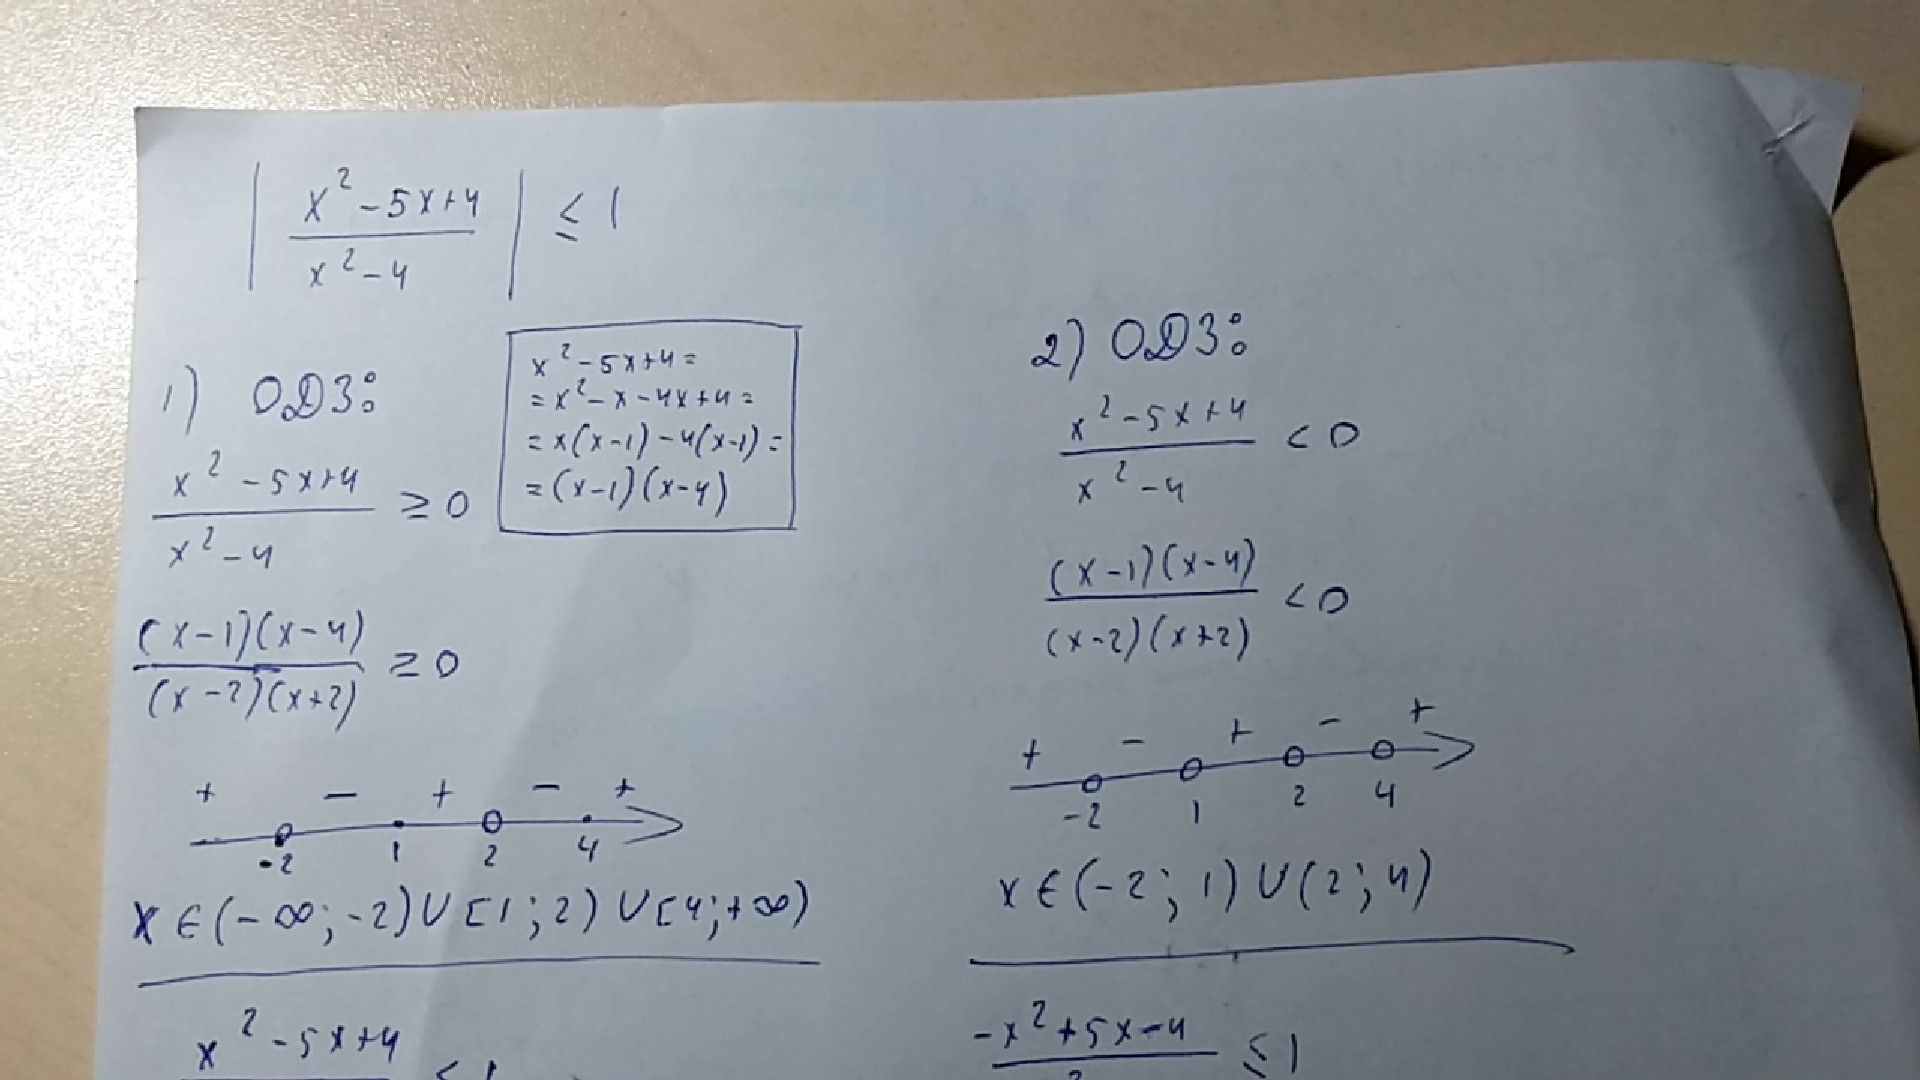 | (x² - 5x + 4) / (x² - 4) | ≤ 1
1) ОДЗ:
(x² - 5x + 4) / (x² - 4) ≥ 0
x² - 5x + 4 =
= x² - x - 4x + 4 =
= x(x - 1) - 4(x - 1) =
= (x - 1)(x - 4)
(x - 1)(x - 4) / (x - 2)(x + 2) ≥ 0
+ - + - +
-2 1 2 4
x ∈ (-∞; -2) ∪ [1; 2) ∪ [4; +∞)
x² - 5x + 4
2) ОДЗ:
(x² - 5x + 4) / (x² - 4) < 0
(x - 1)(x - 4) / (x - 2)(x + 2) < 0
+ - + - +
-2 1 2 4
x ∈ (-2; 1) ∪ (2; 4)
-x² + 5x - 4 ≤ 1